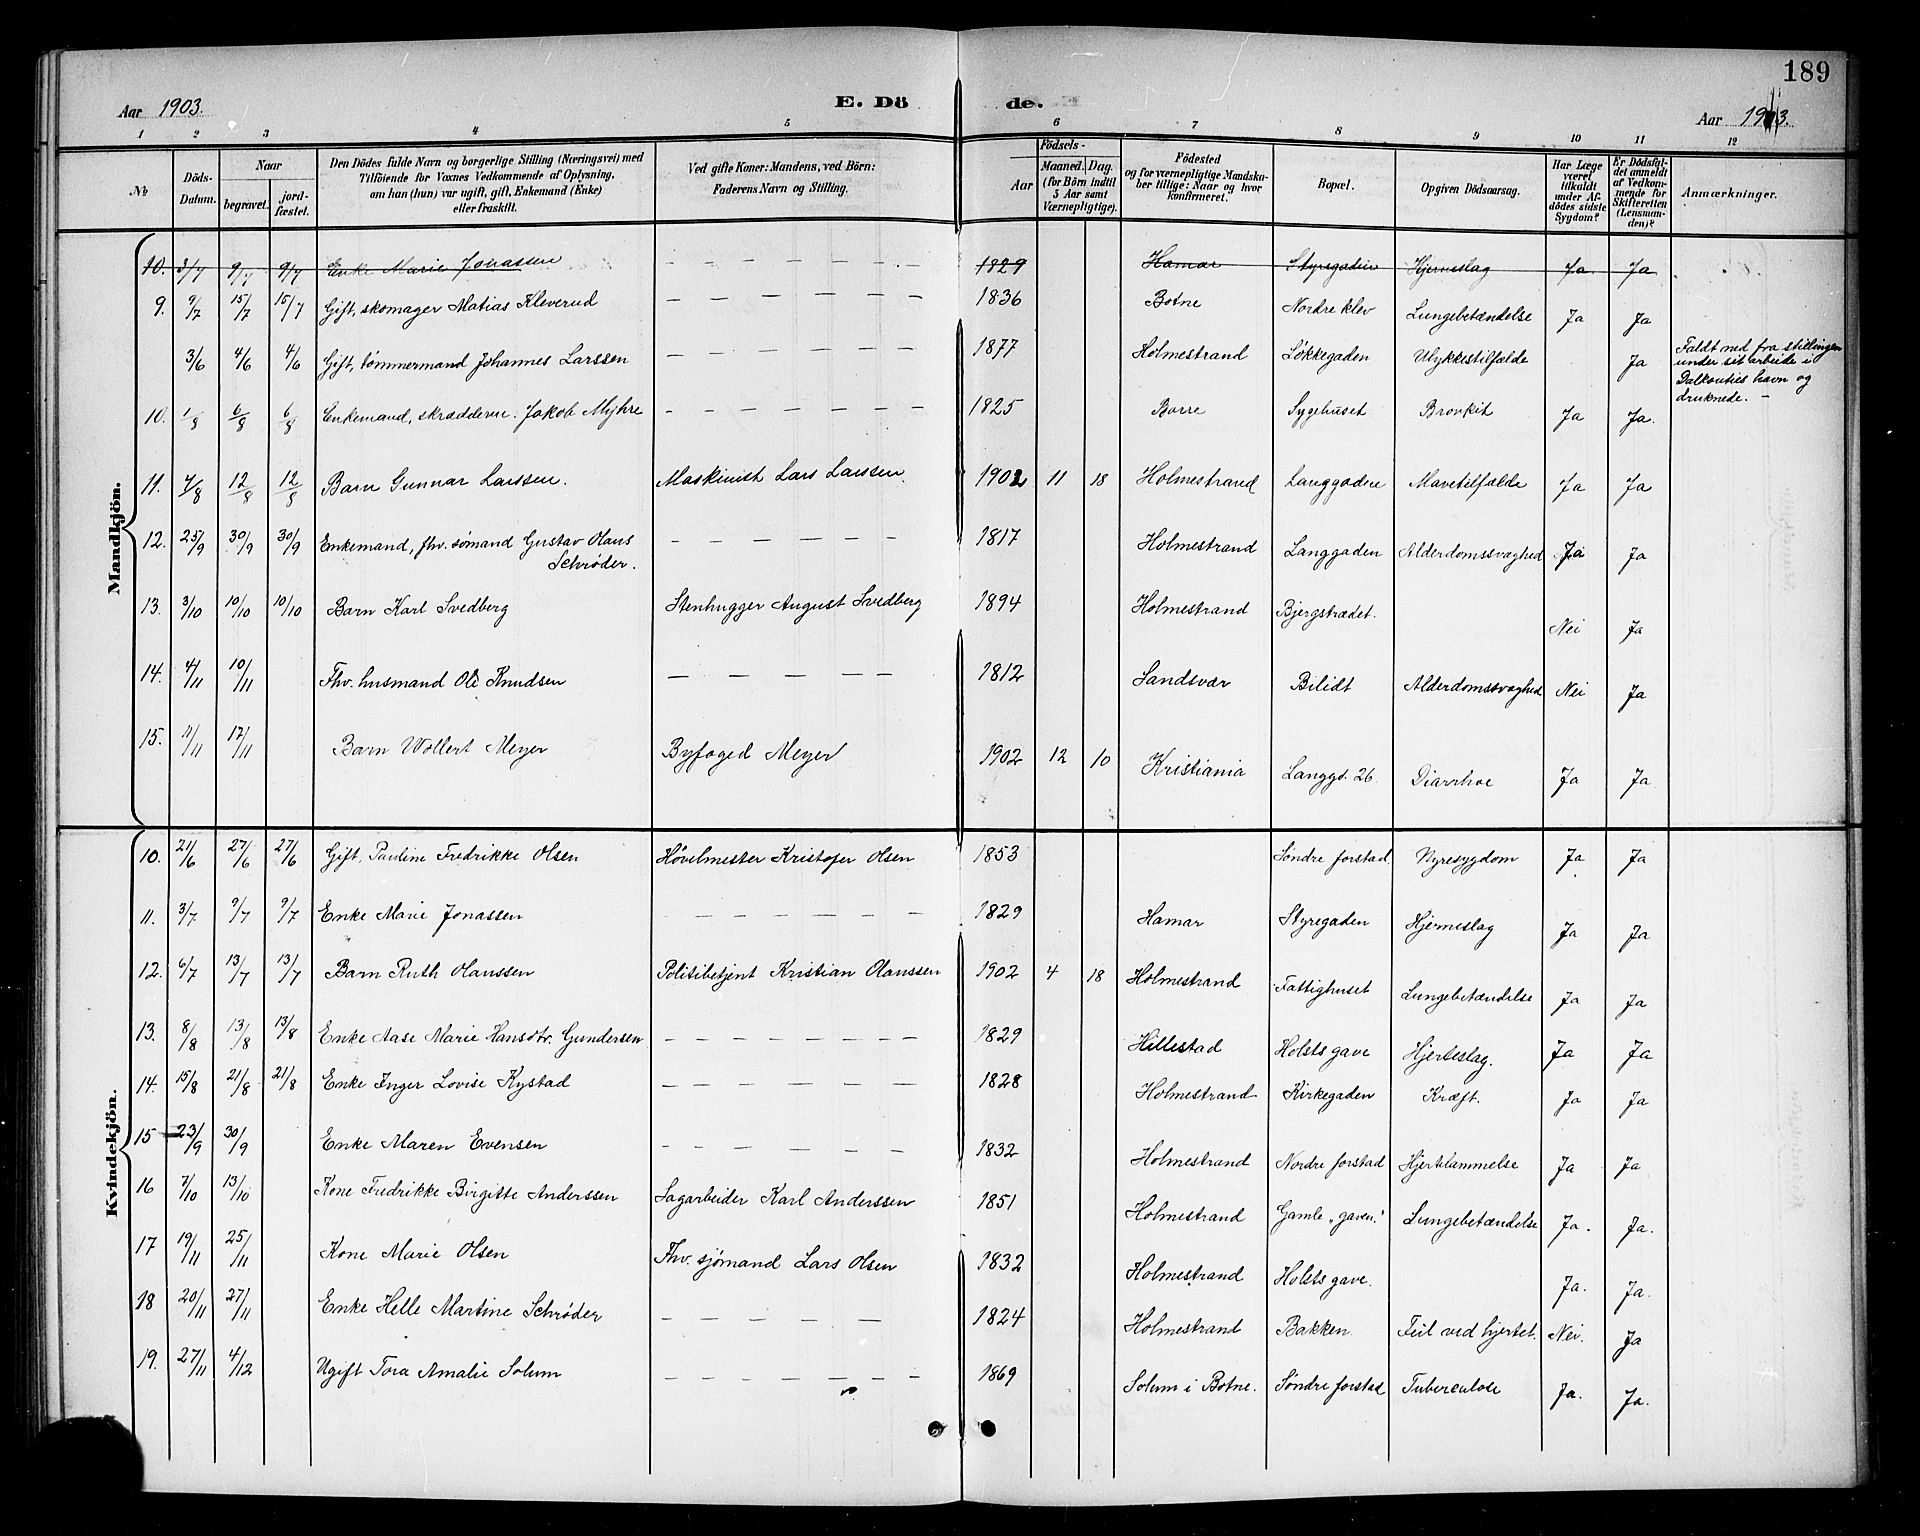 189
Aar 1903. E. Dö de. Aar 1903.
1 2 3 4 5 6 7 8 9 10 11 12
No
Döds-Datum.
Naar
begravet.
jord-fæstet.
Den Dödes fulde Navn og borgerlige Stilling (Næringsvei) med
Tilföiende for Voxnes Vedkommende af Oplysning,
om han (hun) var ugift, gift, Enkemand (Enke)
eller fraskilt.
Ved gifte Koner: Mandens, ved Börn:
Faderens Navn og Stilling.
Födsels-
Aar
Maaned. Dag.
(for Börn indtil
5 Aar samt
Værnepligtige).
Födested
og for værnepligtige Mandska-
ber tillige: Naar og hvor
konfirmeret.
Bopæl.
Opgiven Dödsaarsag.
Har Læge
været
tilkaldt
under Af-
dödes sidste
Sygdom?
Er Dödsfal-
det anmeldt
af Vedkom-
mende for
Skifteretten
(Lensman-
den)?
Anmærkninger.
Mandkjön.
10. 3/7 9/7 9/7 Enke Marie Jonassen 1829 Hamar Styregaden Hjerneslag Ja Ja
9. 9/7 15/7 15/7 Gift, skomager Matias Kleverud — — — — — — 1836 Botne Nordre klev Lungebetændelse Ja Ja
3/6 4/6 4/6 Gift, tømmermand Johannes Larssen — — — — — — 1877 Holmestrand Løkkegaden Ulykkestilfælde Ja Faldt ned fra stillingen
under sit arbeide i
havn og
druknede. —
10. 1/8 6/8 6/8 Enkemand, skræddersv. Jakob Myhre — — — — — — 1825 Borre Sygehuset Brovkit Ja Ja.
11. 7/8 12/8 12/8 Barn Gunnar Larssen. Maskinist Lars Larssen. 1902 11 18 Holmestrand Langgaden Mavetilfælde Ja Ja
12. 25/9 30/9 30/9 Enkemand, fhv. sømand Gustav Olaus
Schrøder. — — — — — — 1817 Holmestrand Langgaden Alderdomssvaghed Ja Ja
13. 3/10 10/10 10/10 Barn Karl Svedberg Stenhugger August Svedberg 1894 Holmestrand Bjergstrædet. Nei Ja
14. 4/11 10/11 Fhv. husmand Ole Knudsen — — — — — 1812 Sandsvær Bilidt Alderdomssvaghed Nei Ja
15. 11/11 17/11 Barn Wollert Meyer Byfoged Meyer 1902 12 10 Kristiania Langgd. 26 Diarrhoe Ja Ja
Kvindekjön.
10. 21/6 27/6 27/6 Gift, Pauline Fredrikke Olsen Høvelmester Kristofer Olsen 1853 Søndre forstad. Nyresygdom Ja Ja
11. 3/7 9/7 9/7 Enke Marie Jonassen — — — — — — 1829 Hamar Styregaden Hjerneslag Ja Ja
12. 6/7 13/7 13/7 Barn Ruth Olaussen Politibetjent Kristian Olaussen 1902 4 18 Holmestrand Fattighuset Lungebetændelse Ja Ja
13. 8/8 13/8 13/8 Enke Aase Marie Hansdtr. Gundersen — — — — — — — 1829 Hillestad Holsts gave Hjerteslag. Ja Ja
14. 15/8 21/8 21/8 Enke Inger Lovise Kystad — — — — — — 1828 Holmestrand Kirkegaden Kræft. Ja Ja
15 23/9 30/9 Enke Maren Evensen — — — — — — 1832 Holmestrand Nordre forstad Hjertelammelse Ja Ja
16 7/10 13/10 Kone Fredrikke Birgitte Anderssen Sagarbeider Karl Anderssen 1851 Holmestrand Gamle „gaven." Lungebetændelse Ja. Ja.
17 19/11 25/11 Kone Marie Olsen Fhv. sjømand Lars Olsen 1832 Holmestrand Holsts gave. Ja. Ja.
18 20/11 27/11 Enke Helle Martine Schrøder — — — — — — 1824 Holmestrand Bakken. Feil ved hjertet. Nei. Ja
19. 27/11 4/12 Ugift Tora Amalie Solum — — — — — — — 1869 Solum i Botne. Søndre forstad Tuberculose Ja. Ja.